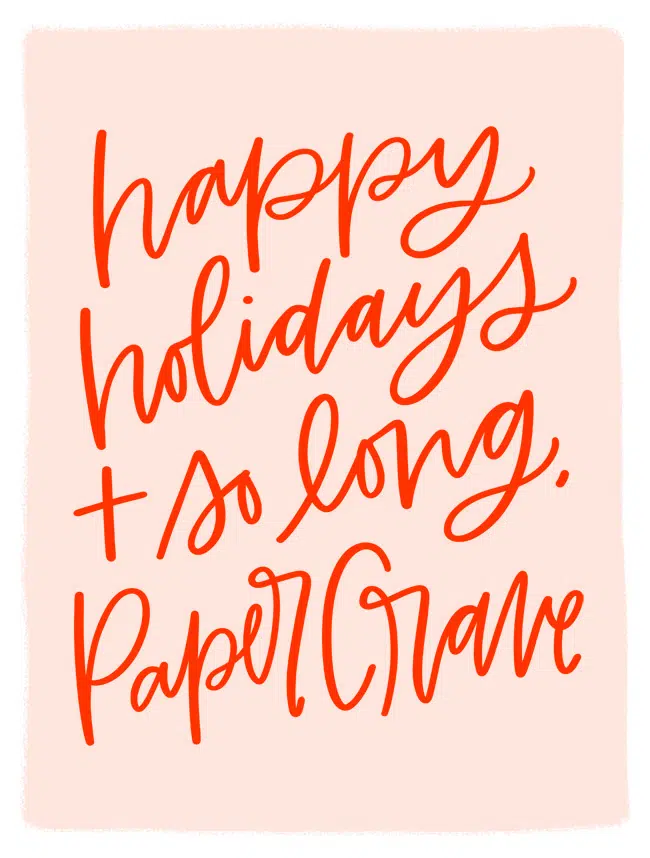 happy
holidays
+ so long,
PaperCrave